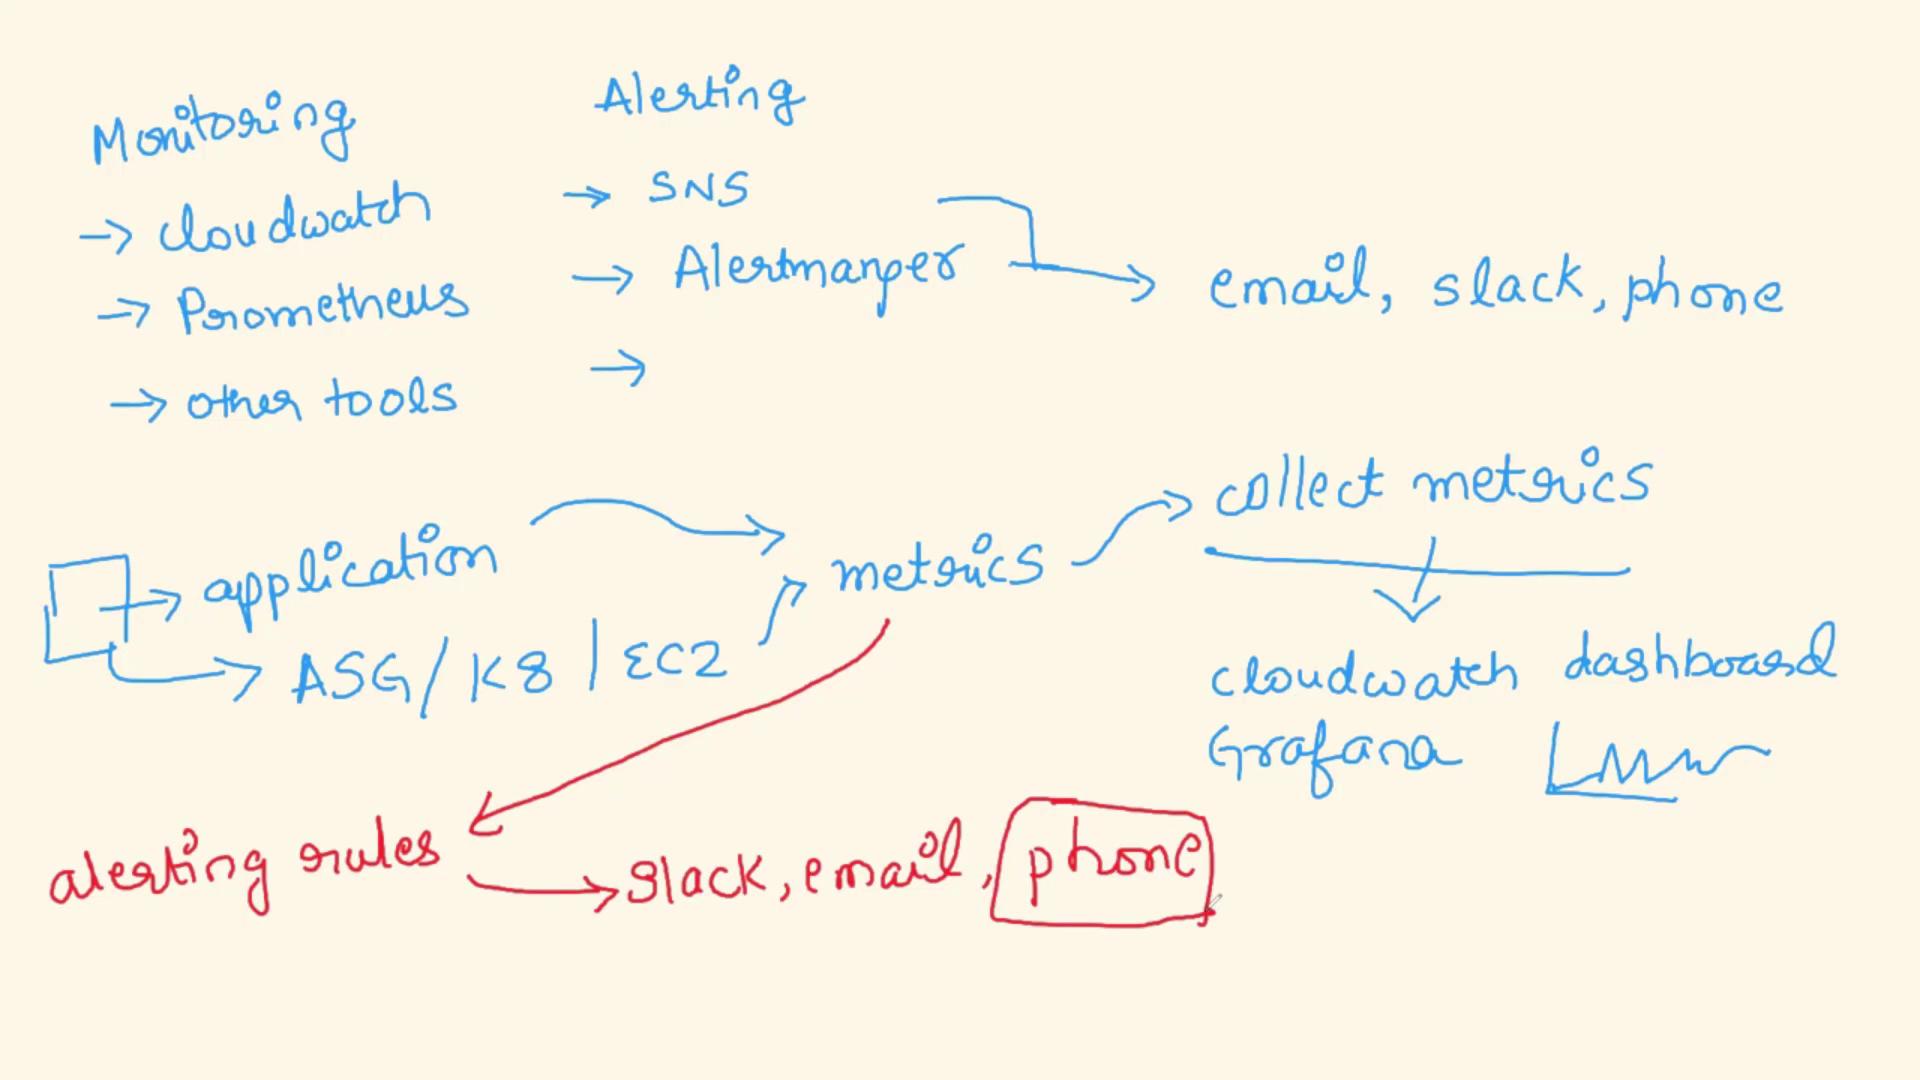 Monitoring
→ cloudwatch
→ Prometheus
→ other tools
Alerting
→ SNS
→ Alertmanger → email, slack, phone
→
→ application → metrics → collect metrics
→ ASG / K8 | EC2
cloudwatch dashboard
Grafana
alerting rules → slack, email, phone